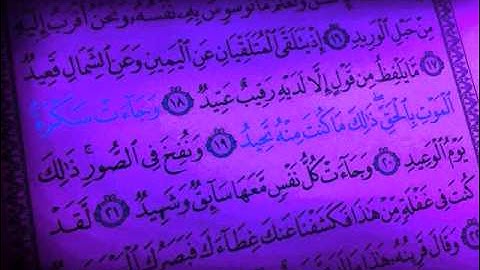 ونعلم ما توسوس به نفسه ونحن أقرب إليه
مِنْ حَبْلِ ٱلْوَرِيدِ ١٦ إِذْ يَتَلَقَّى ٱلْمُتَلَقِّيَانِ عَنِ ٱلْيَمِينِ وَعَنِ ٱلشِّمَالِ قَعِيدٌ
١٧ مَّا يَلْفِظُ مِن قَوْلٍ إِلَّا لَدَيْهِ رَقِيبٌ عَتِيدٌ ١٨ وَجَآءَتْ سَكْرَةُ
ٱلْمَوْتِ بِٱلْحَقِّ ذَٰلِكَ مَا كُنتَ مِنْهُ تَحِيدُ ١٩ وَنُفِخَ فِى ٱلصُّورِ ذَٰلِكَ
يَوْمُ ٱلْوَعِيدِ ٢٠ وَجَآءَتْ كُلُّ نَفْسٍ مَّعَهَا سَآئِقٌ وَشَهِيدٌ ٢١ لَّقَدْ
كُنتَ فِى غَفْلَةٍ مِّنْ هَٰذَا فَكَشَفْنَا عَنكَ غِطَآءَكَ فَبَصَرُكَ
وَقَالَ قَرِينُهُۥ هَٰذَا